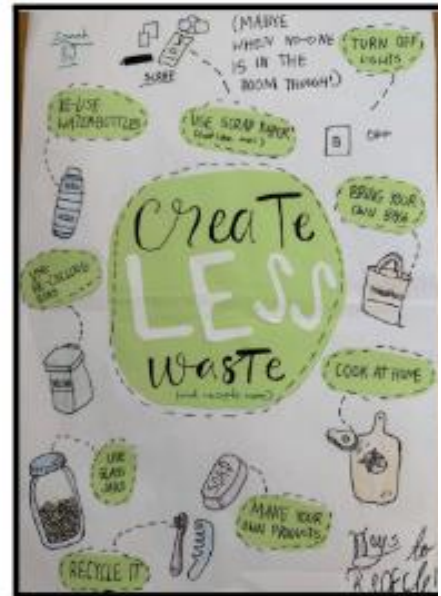 SCRAP
(MAYBE
WHEN NO-ONE
IS IN THE
ROOM THOUGH!)
TURN OFF
LIGHTS
OFF
RE-USE
WATERBOTTLES
USE SCRAP PAPER
BRING YOUR
OWN BAG
CreaTe
LESS
wasTe
(and recycle more)
USE
RE-CYCLING
BINS
COOK AT HOME
USE
GLASS
JARS
MAKE YOUR
OWN PRODUCTS
RECYCLE IT
Ways to
RECYCLE!